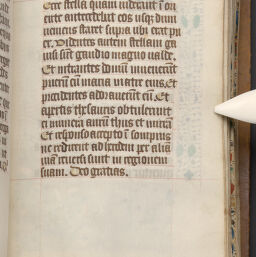 Ecce stella quam viderant i ori
ente antecedebat eos usq; dum
veniens staret supra ubi erat pu
er. Videntes autem stellam ga
uisi sunt gaudio magno valde.
Et intrantes domū invenerunt
puerū cū maria matre eius. Et
procidentes adoraverūt eū. Et
apertis thesauris obtulerunt
ei munera aurū thus et mirrā
Et responso accepto ī sompnis
ne redirent ad herodem per aliā
viā reversi sunt in regionem
suam. Deo gratias.